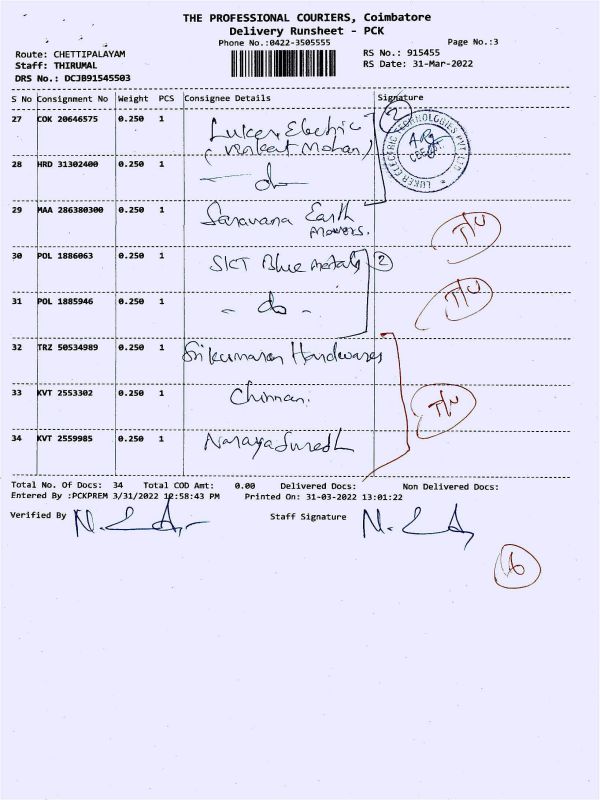 THE PROFESSIONAL COURIERS, Coimbatore
Delivery Runsheet - PCK
Phone No.:0422-3505555
Page No.:3
Route: CHETTIPALAYAM
RS No.: 915455
Staff: THIRUMAL
RS Date: 31-Mar-2022
DRS No.: DCJB91545503
S No Consignment No Weight PCS Consignee Details Signature
27 COK 20646575 0.250 1 Luker Electric 2
(Venkeat Mohan)
LUKER ELECTRIC TECHNOLOGIES PVT LTD
28 HRD 31302400 0.250 1 - do -
29 MAA 286380300 0.250 1 Saravana Earth movers. T/U
30 POL 1886063 0.250 1 SKT Blue metals 2
31 POL 1885946 0.250 1 - do - T/U
32 TRZ 50534989 0.250 1 Srikumaran Hardwares
33 KVT 2553302 0.250 1 Chinnan. T/U
34 KVT 2559985 0.250 1
Total No. Of Docs: 34 Total COD Amt: 0.00 Delivered Docs: Non Delivered Docs:
Entered By :PCKPREM 3/31/2022 12:58:43 PM Printed On: 31-03-2022 13:01:22
Verified By Staff Signature